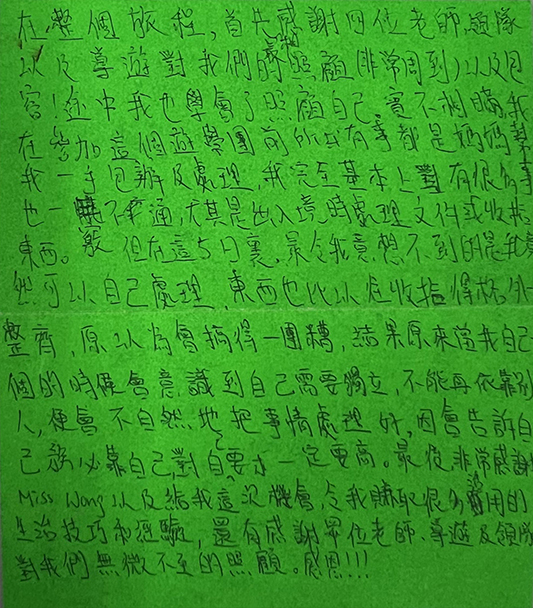 在整個旅程,首先感謝四位老師,領隊
以及導遊對我們的照顧(非常周到)以及包
容!途中我也學會了照顧自己,實不相瞞,我
在參加這個遊學團前所有事都是媽媽幫
我一手包辦及處理,我完全基本上對有很多事
也一竅不通,尤其是出入境時處理文件或收拾
東西。但在這5日裏,最令我意想不到的是我竟
然可以自己處理,東西也比以往收拾得格外
整齊,原以為會搞得一團糟,結果原來當我自己一
個的時候會意識到自己需要獨立,不能再依靠別
人,便會不自然地把事情處理好,因會告訴自
己務必靠自己,對自要求一定要高。最後非常感謝
Miss Wong以及給我這次機會,令我賺取很多有用的
生活技巧和經驗,還有感謝眾位老師、導遊及領隊
對我們無微不至的照顧。感恩!!!